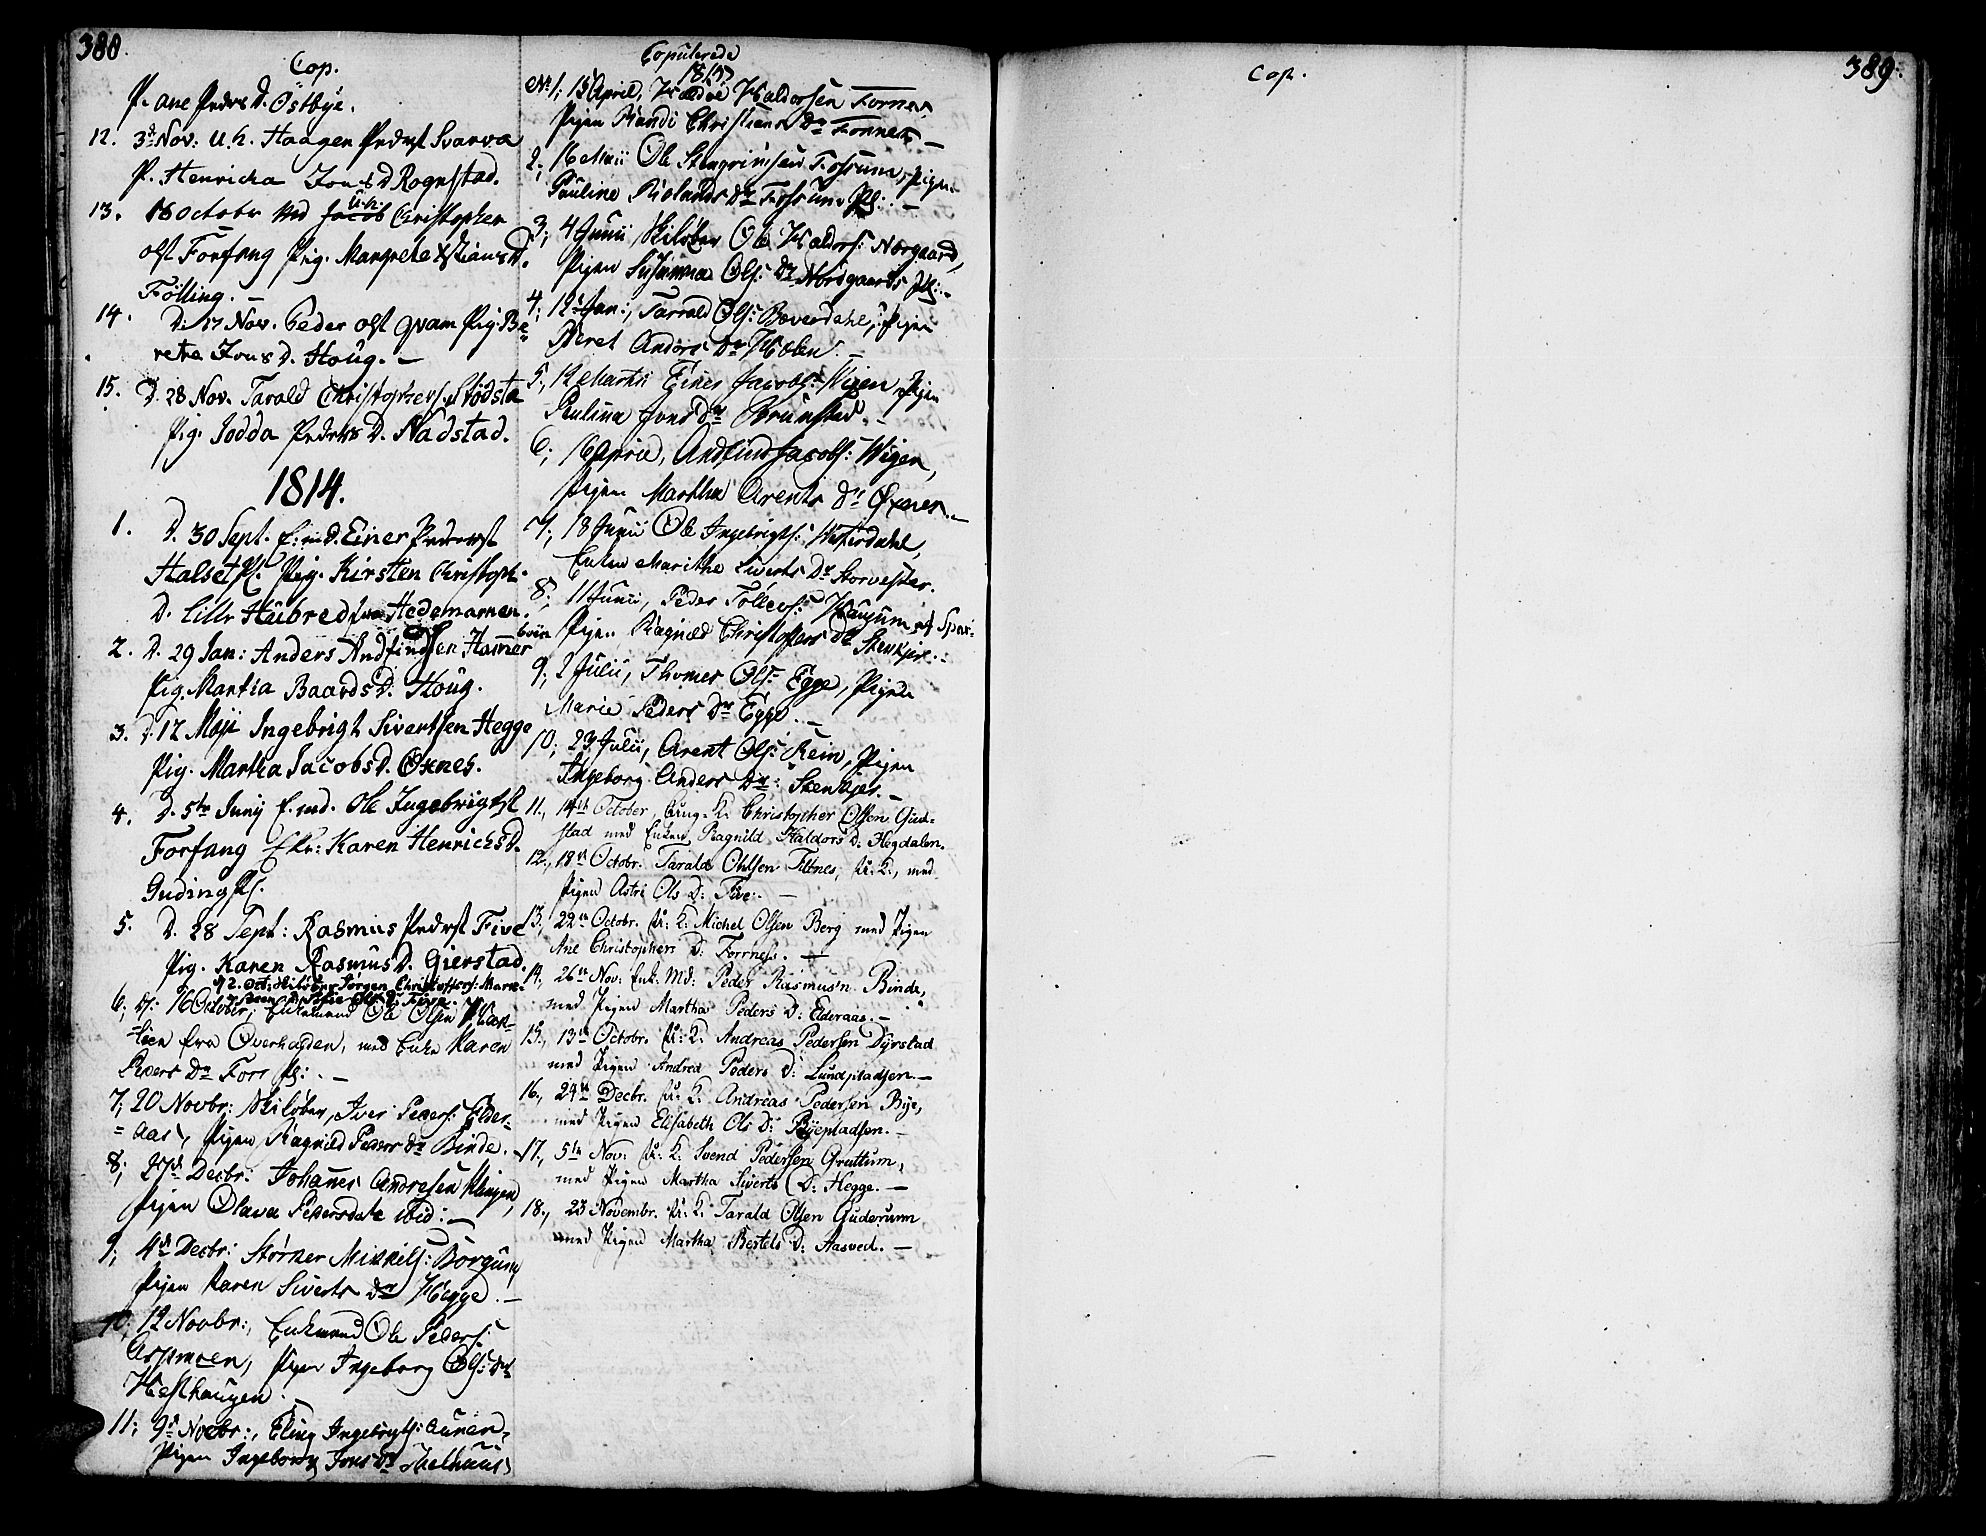 388.
Cop.
P. ane Peders D. Östbye.
12. 3d Nov: U. k. Haagen Pederst Svarva
P. Henricka Jons D Rognstad.
13. 18 Octobr Ud U.k. Christopher
olst Forfang Pig. Margrete Xstians D.
Fölling. —
14. D. 17 Nov. Peder olst qvam Pig. Be-
retra Jons D. Houg. —
15. D. 28 Nov. Tarald Christophers. Stödsta
Pig. Jodda Peders D. Nadstad.
1814.
1. D. 30 Sept. E: md. Einer Pederst
Halset Pl. Pig. Kirsten Christoph.
D. Lille Huibred fra Hedemarnen.
2. D. 29 Jan: Anders Andfindsen Hamer
Pig. Martia Baards D. Houg.
3. D. 12 Maji Ingebrigt Sivertsen Hegge
Pig. Martha Jacobs D. Öxnes.
4. D. 5te Junij E. md. Ole Ingebrigtst
Forfang Eke: Karen Henrichs D.
Guding Pl.
5. D. 28 Sept: Rasmus Pederst Five
Pig. Karen Rasmus D. Gierstad.
12. Oct: Skilöber Jörgen Christoffers: Mære
6; d: 16 October, Enkemand Ole Olsen
fra Overhalden, med Enke Karen
Peders Dr Forr Pl: . —
7; 20 Novbr: Skilöber, Iver Peders: Elder-
= aas, Pigen Ragnild Peders Dr Binde.
8; 27d Decbr: Johanes Andresen Klingen,
Pigen Olava Pedersdatr ibid: —
9; 4d Decbr: Störker Mikkels: Borgum
Pigen Karen Siverts Dr Hegge. —
10; 12 Novbr:, Enkemand Ole Peders:
Aspmoen, Pigen Ingeborg Ols: Dr
Hesthaugen.
11; 9d Novbr:, Eling Ingebrigts: Auner,
Pigen Ingeborg Jons Dr Melhuus
Copulerede
1815
No 1; 13 April, Haldor Haldorsen Fornes,
Pigen Randi Christians Dr Fornes —
2; 16 Maii Ole Stengrimsen Fossum, Pigen
Pauline Rolands Dr Fossum Pl: . —
3; 4 Junii Skilöber Ole Haldors: Norgaard,
Pigen Susanna Ols: Dr Nordgaards Pl: .
4; 12 Jan:, Tarrald Ols: Beverdahl, Pigen
Beret Anders Dr Holen. —
5; 12 Martii Einer Jacobs: Wigen, Pigen
Paulina Jons Dr Brunstad. —
6; 16 April, Andfind Jacobs: Wigen,
Pigen Martha Arents Dr Öxnes. —
7; 13 Junii Ole Ingebrigts: Westerdahl,
Enken Marithe Siverts Dr Storvester.
8; 11 Junii, Peder Tollevs: Haugum af Spar-
boen Pigen Ragnild Christoffers Dr Stenkjer. —
9; 2 Julii, Thomes Ols: Egge, Pigen
Marie Peders Dr Egge. —
10; 23 Julii, Arent Ols: Rein, Pigen
Ingeborg Anders Dr: Stenkjer. —
11., 14de October, Ung. K. Christopher Olsen Gud-
stad med Enken Ragnild Haldors D. Hegdalen.
12., 18de Octobr. Tarald Ohlsen Tiltnes, U: K., med
Pigen Astri Ols D: Five. —
13., 22de Octobr. U: K: Michel Olsen Berg med Pigen
Ane Christophers D: Forrness. —
14. 26de Nov: Enk. Md: Peder Rasmusn. Binde,
med Pigen Martha Peders D: Elderaas. —
15., 13de Octobr. U: K. Andreas Pedersen Dyrstad
med Pigen Andrea Peders D: Lundpladsen. —
16., 24de Decbr. U: K. Andreas Pedersen Bye,
med Pigen Elisabeth Ols D: Byepladsen. —
17., 5te Nov: U: K. Svend Pedersen Qruttum,
med Pigen Martha Siverts D: Hegge. —
18., 23 Novembr. U: K. Tarald Olsen Guderum,
med Pigen Martha Bertels D: Aasved. —
Cop.
389.